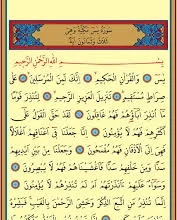 سُورَةُ يسٓ مَكِّيَّةٌ وَهِيَ
ثَلَاثٌ وَثَمَانُونَ آيَةً
بِسْمِ اللّٰهِ الرَّحْمٰنِ الرَّحِيمِ
يسٓ وَالْقُرْآنِ الْحَكِيمِ إِنَّكَ لَمِنَ الْمُرْسَلِينَ عَلَى
صِرَاطٍ مُسْتَقِيمٍ تَنْزِيلَ الْعَزِيزِ الرَّحِيمِ لِتُنْذِرَ قَوْمًا
مَا أُنْذِرَ آبَاؤُهُمْ فَهُمْ غَافِلُونَ لَقَدْ حَقَّ الْقَوْلُ عَلَى
أَكْثَرِهِمْ فَهُمْ لَا يُؤْمِنُونَ إِنَّا جَعَلْنَا فِي أَعْنَاقِهِمْ أَغْلَالًا
فَهِيَ إِلَى الْأَذْقَانِ فَهُمْ مُقْمَحُونَ وَجَعَلْنَا مِنْ بَيْنِ أَيْدِيهِمْ
سَدًّا وَمِنْ خَلْفِهِمْ سَدًّا فَأَغْشَيْنَاهُمْ فَهُمْ لَا يُبْصِرُونَ
وَسَوَاءٌ عَلَيْهِمْ أَأَنْذَرْتَهُمْ أَمْ لَمْ تُنْذِرْهُمْ لَا يُؤْمِنُونَ
إِنَّمَا تُنْذِرُ مَنِ اتَّبَعَ الذِّكْرَ وَخَشِيَ الرَّحْمٰنَ بِالْغَيْبِ